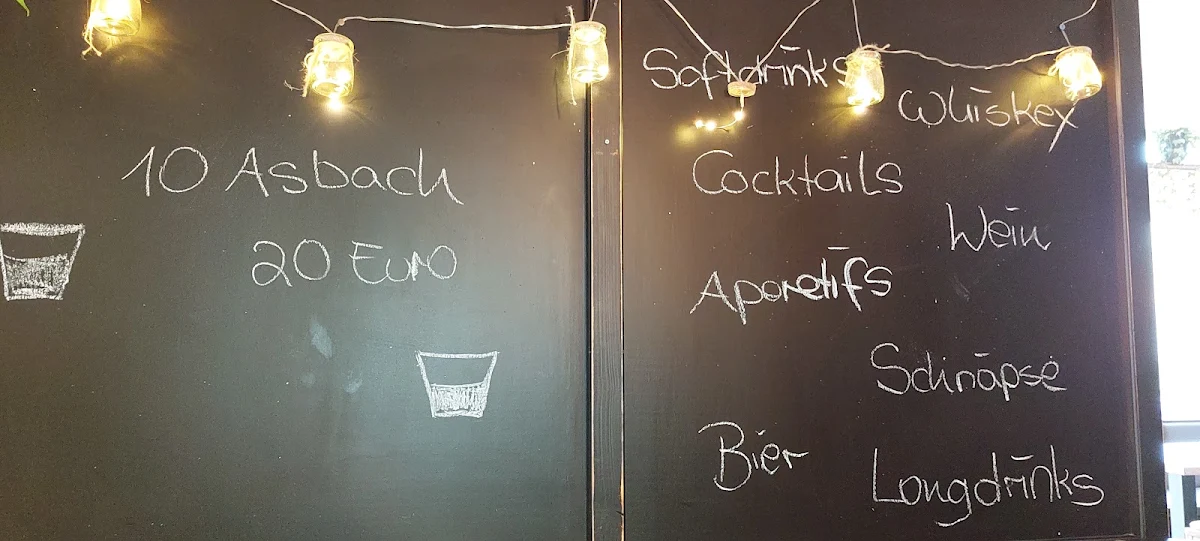 10 Asbach
20 Euro
Softdrinks
Whiskey
Cocktails
Wein
Aporetifs
Schnāpse
Bier
Longdrinks